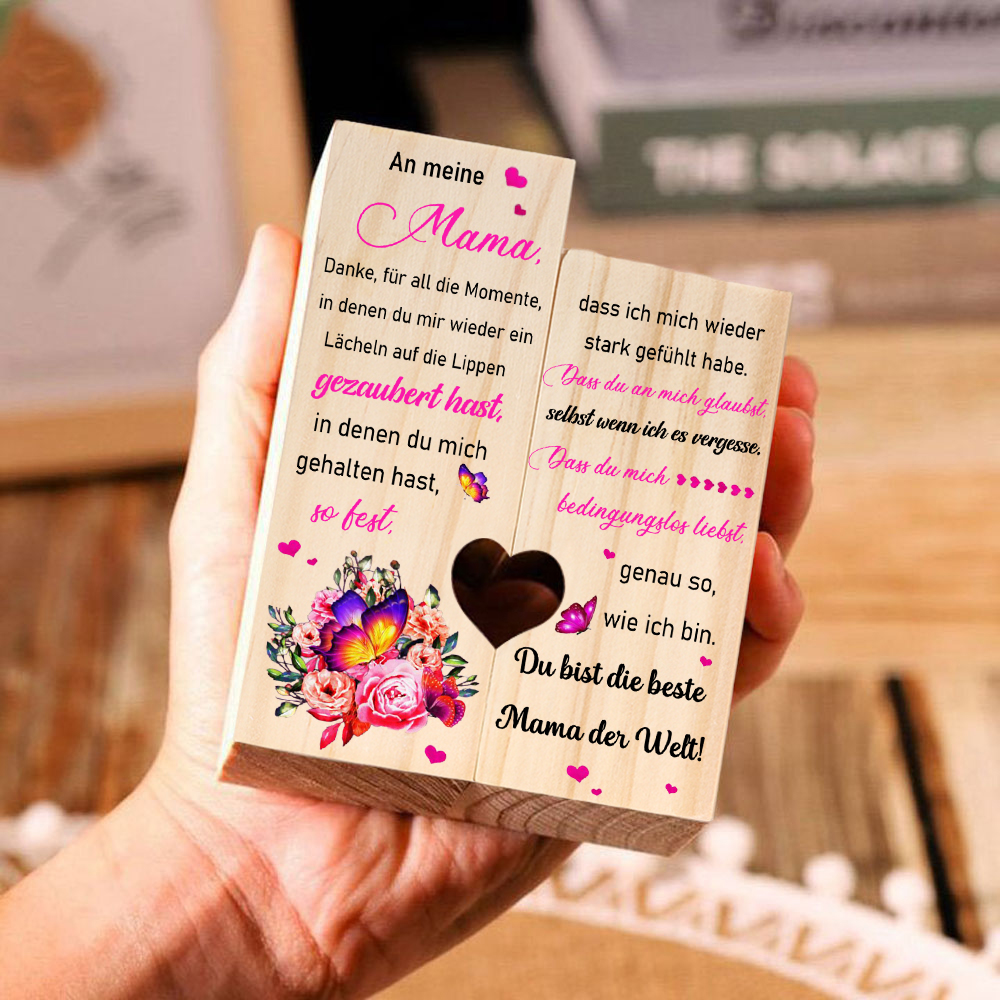 An meine
Mama,
Danke, für all die Momente,
in denen du mir wieder ein
Lächeln auf die Lippen
gezaubert hast,
in denen du mich
gehalten hast,
so fest,
dass ich mich wieder
stark gefühlt habe.
Dass du an mich glaubst,
selbst wenn ich es vergesse.
Dass du mich
bedingungslos liebst,
genau so,
wie ich bin.
Du bist die beste
Mama der Welt!
THE SOLACE